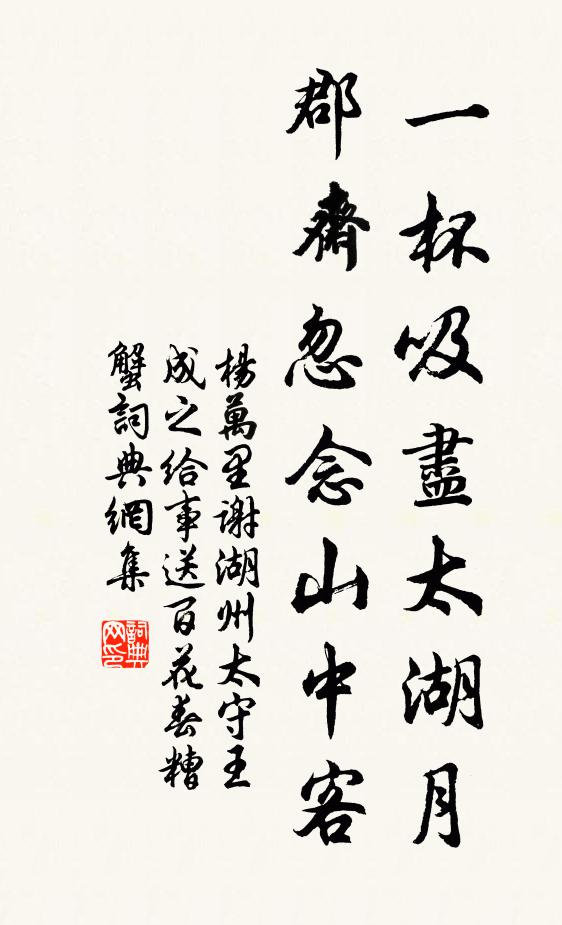 一杯吸盡太湖月
郡齋忽念山中客
楊萬里謝湖州太守王
成之給事送百花春糟
蟹詞典網集
詞典
网印